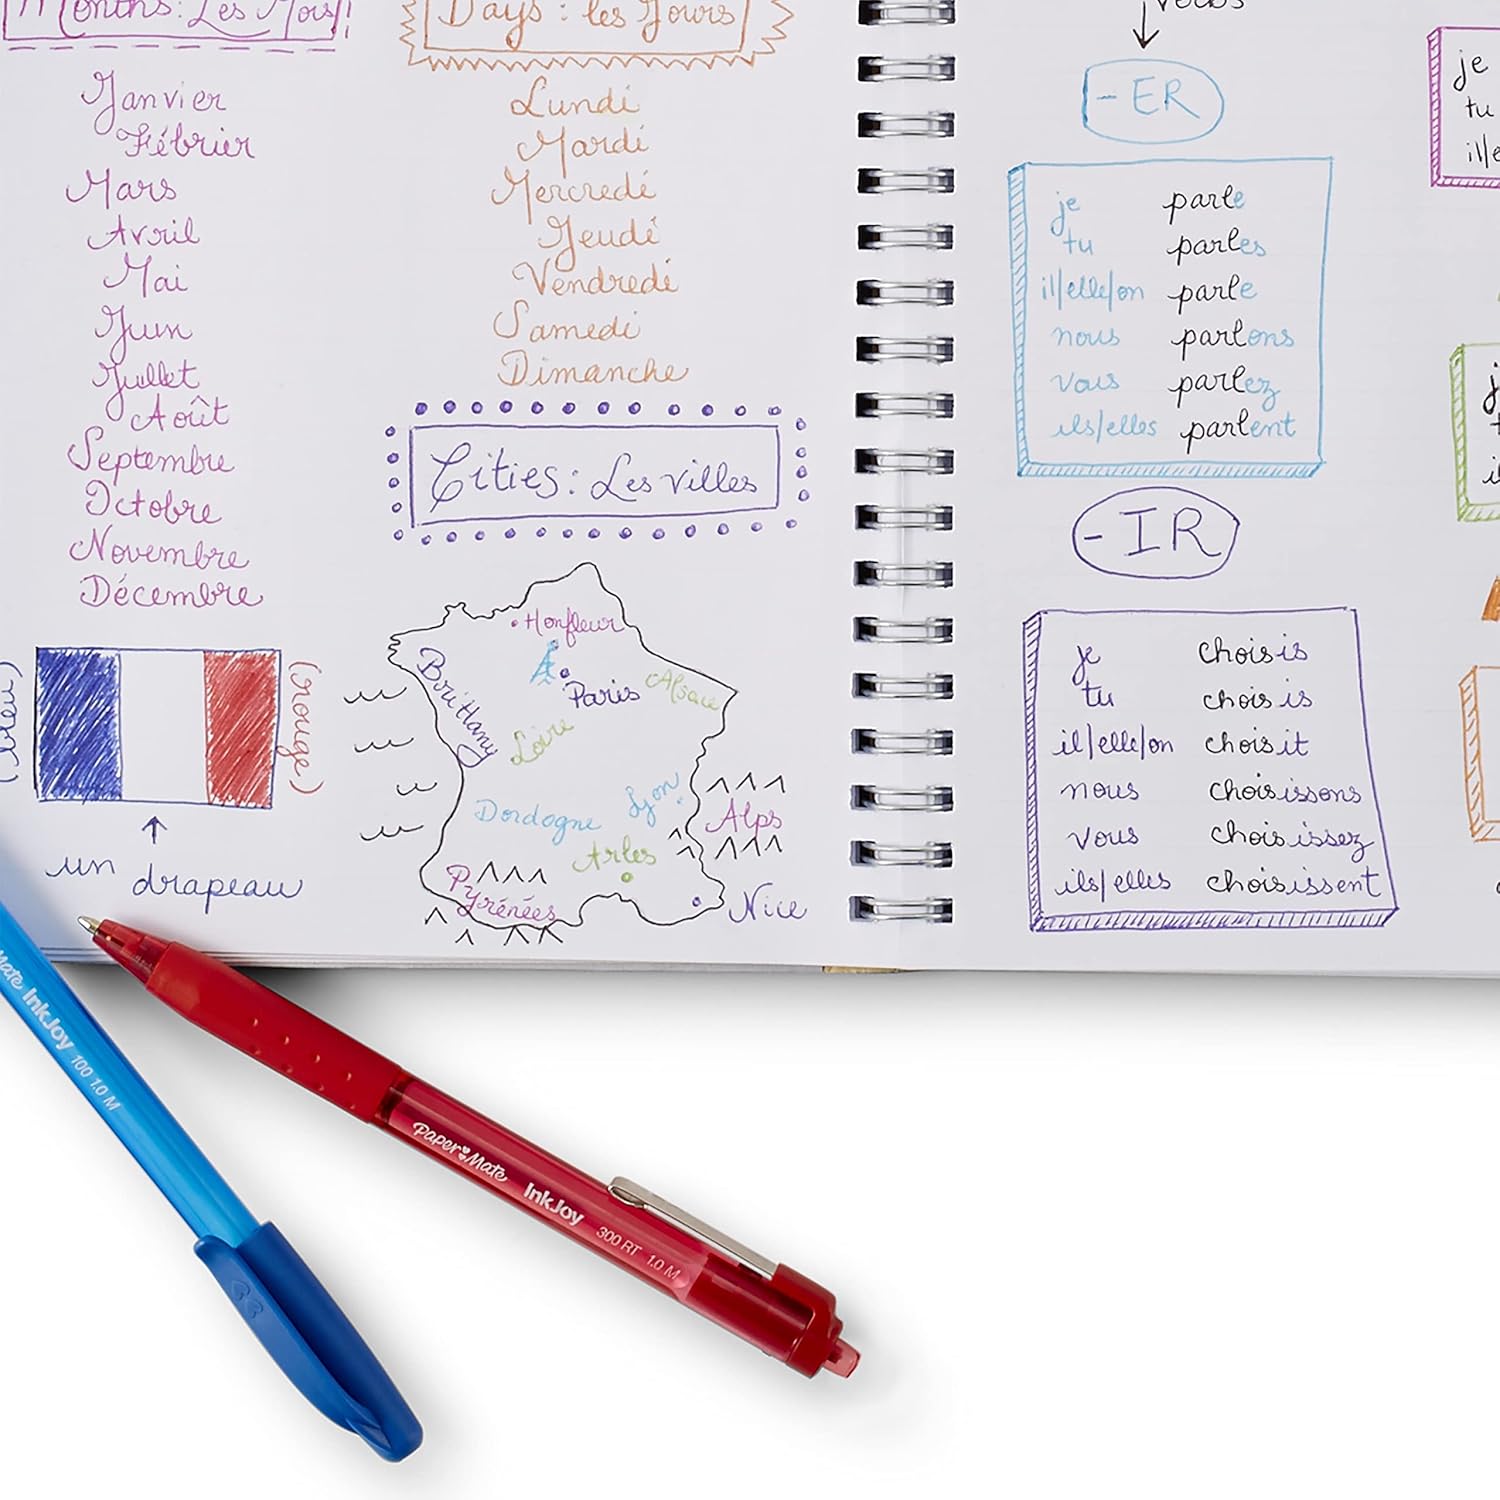 Months: Les Mois!
Janvier
Fébrier
Mars
Avril
Mai
Juin
Juillet
Août
Septembre
Octobre
Novembre
Décembre
(bleu)
(rouge)
un drapeau
Days: les Jours
Lundi
Mardi
Mercredi
Jeudi
Vendredi
Samedi
Dimanche
Cities: Les villes
Honfleur
Paris
Alsace
Brittany
Loire
Dordogne
Lyon
Alps
Arles
Pyrénées
Nice
-ER
je parle
tu parles
il/elle/on parle
nous parlons
vous parlez
ils/elles parlent
-IR
je choisis
tu choisis
il/elle/on choisit
nous choisissons
vous choisissez
ils/elles choisissent
je
tu
Mate InkJoy 100 1.0 M
Paper Mate InkJoy 300 RT 1.0 M